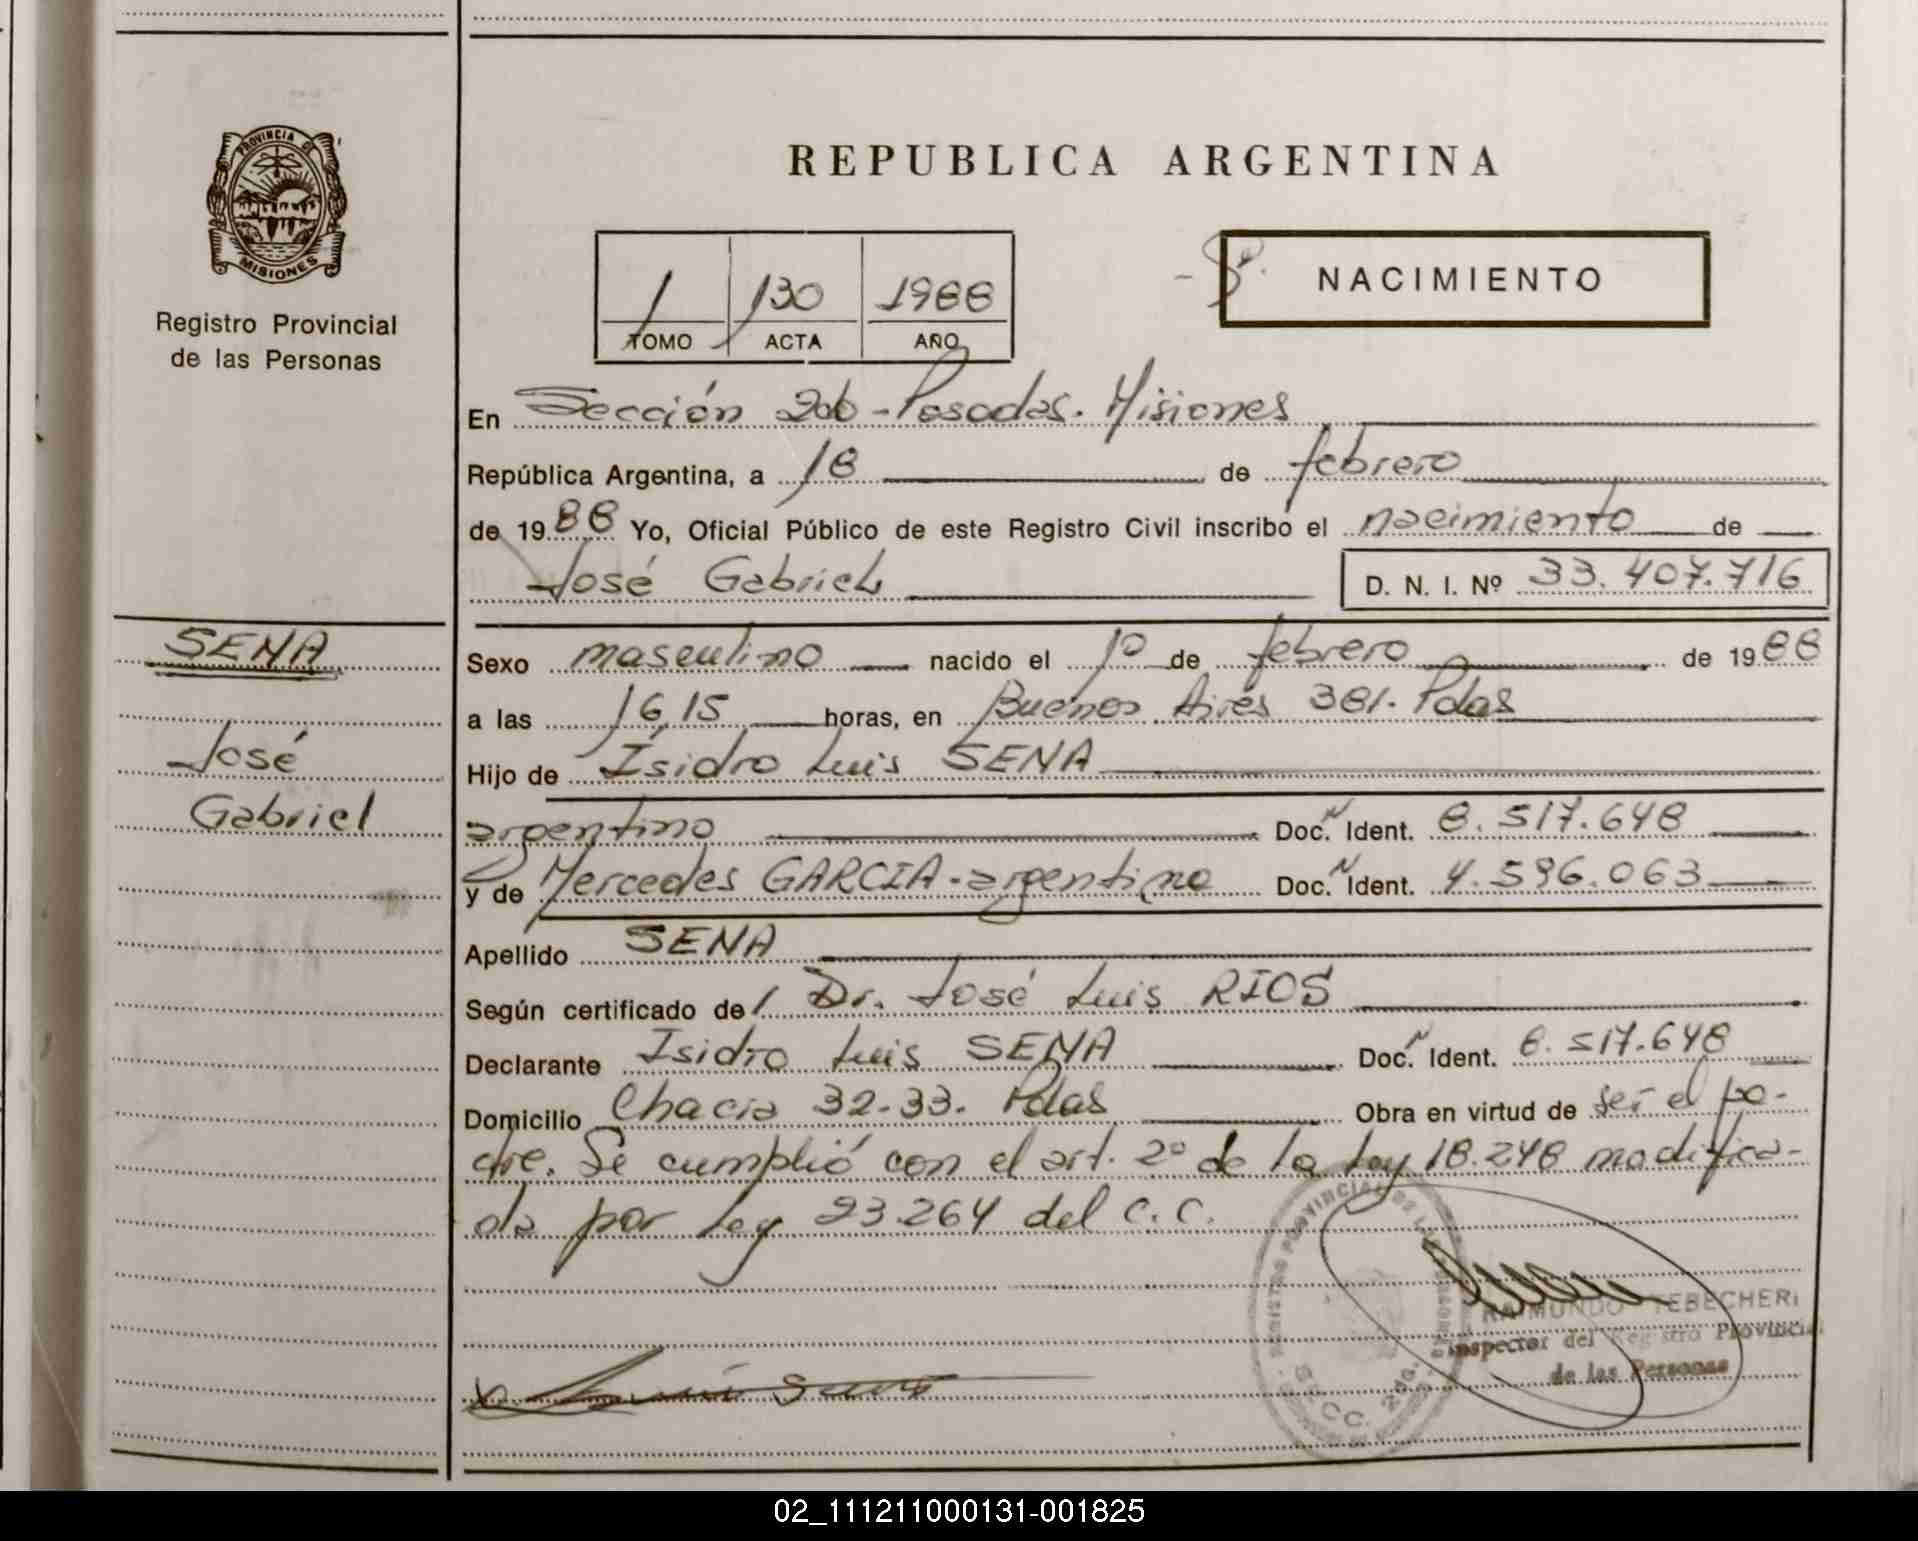 PROVINCIA DE
MISIONES
Registro Provincial
de las Personas
SENA
José
Gabriel
REPUBLICA ARGENTINA
1 130 1988
TOMO ACTA AÑO
NACIMIENTO
En Sección 2da - Posadas. Misiones
República Argentina, a 18 de febrero
de 1988 Yo, Oficial Público de este Registro Civil inscribo el nacimiento de
José Gabriel D. N. I. Nº 33.407.716
Sexo masculino nacido el 1º de febrero de 1988
a las 16,15 horas, en Buenos Aires 381. Pdas
Hijo de Isidro Luis SENA
argentino Doc. Ident. 8.517.648
y de Mercedes GARCIA - argentina Doc. Ident. 4.596.063
Apellido SENA
Según certificado de Dr. José Luis RIOS
Declarante Isidro Luis SENA Doc. Ident. 8.517.648
Domicilio Chacra 32-33. Pdas Obra en virtud de ser el pa-
dre. Se cumplió con el art. 2º de la Ley 18.248 modifica-
da por Ley 23.264 del C.C.
REGISTRO PROVINCIAL DE LAS
SECC. 2da.
RAIMUNDO TEBECHERI
Inspector del Registro Provincial
de las Personas
02_111211000131-001825